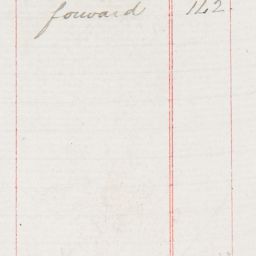 forward 142.